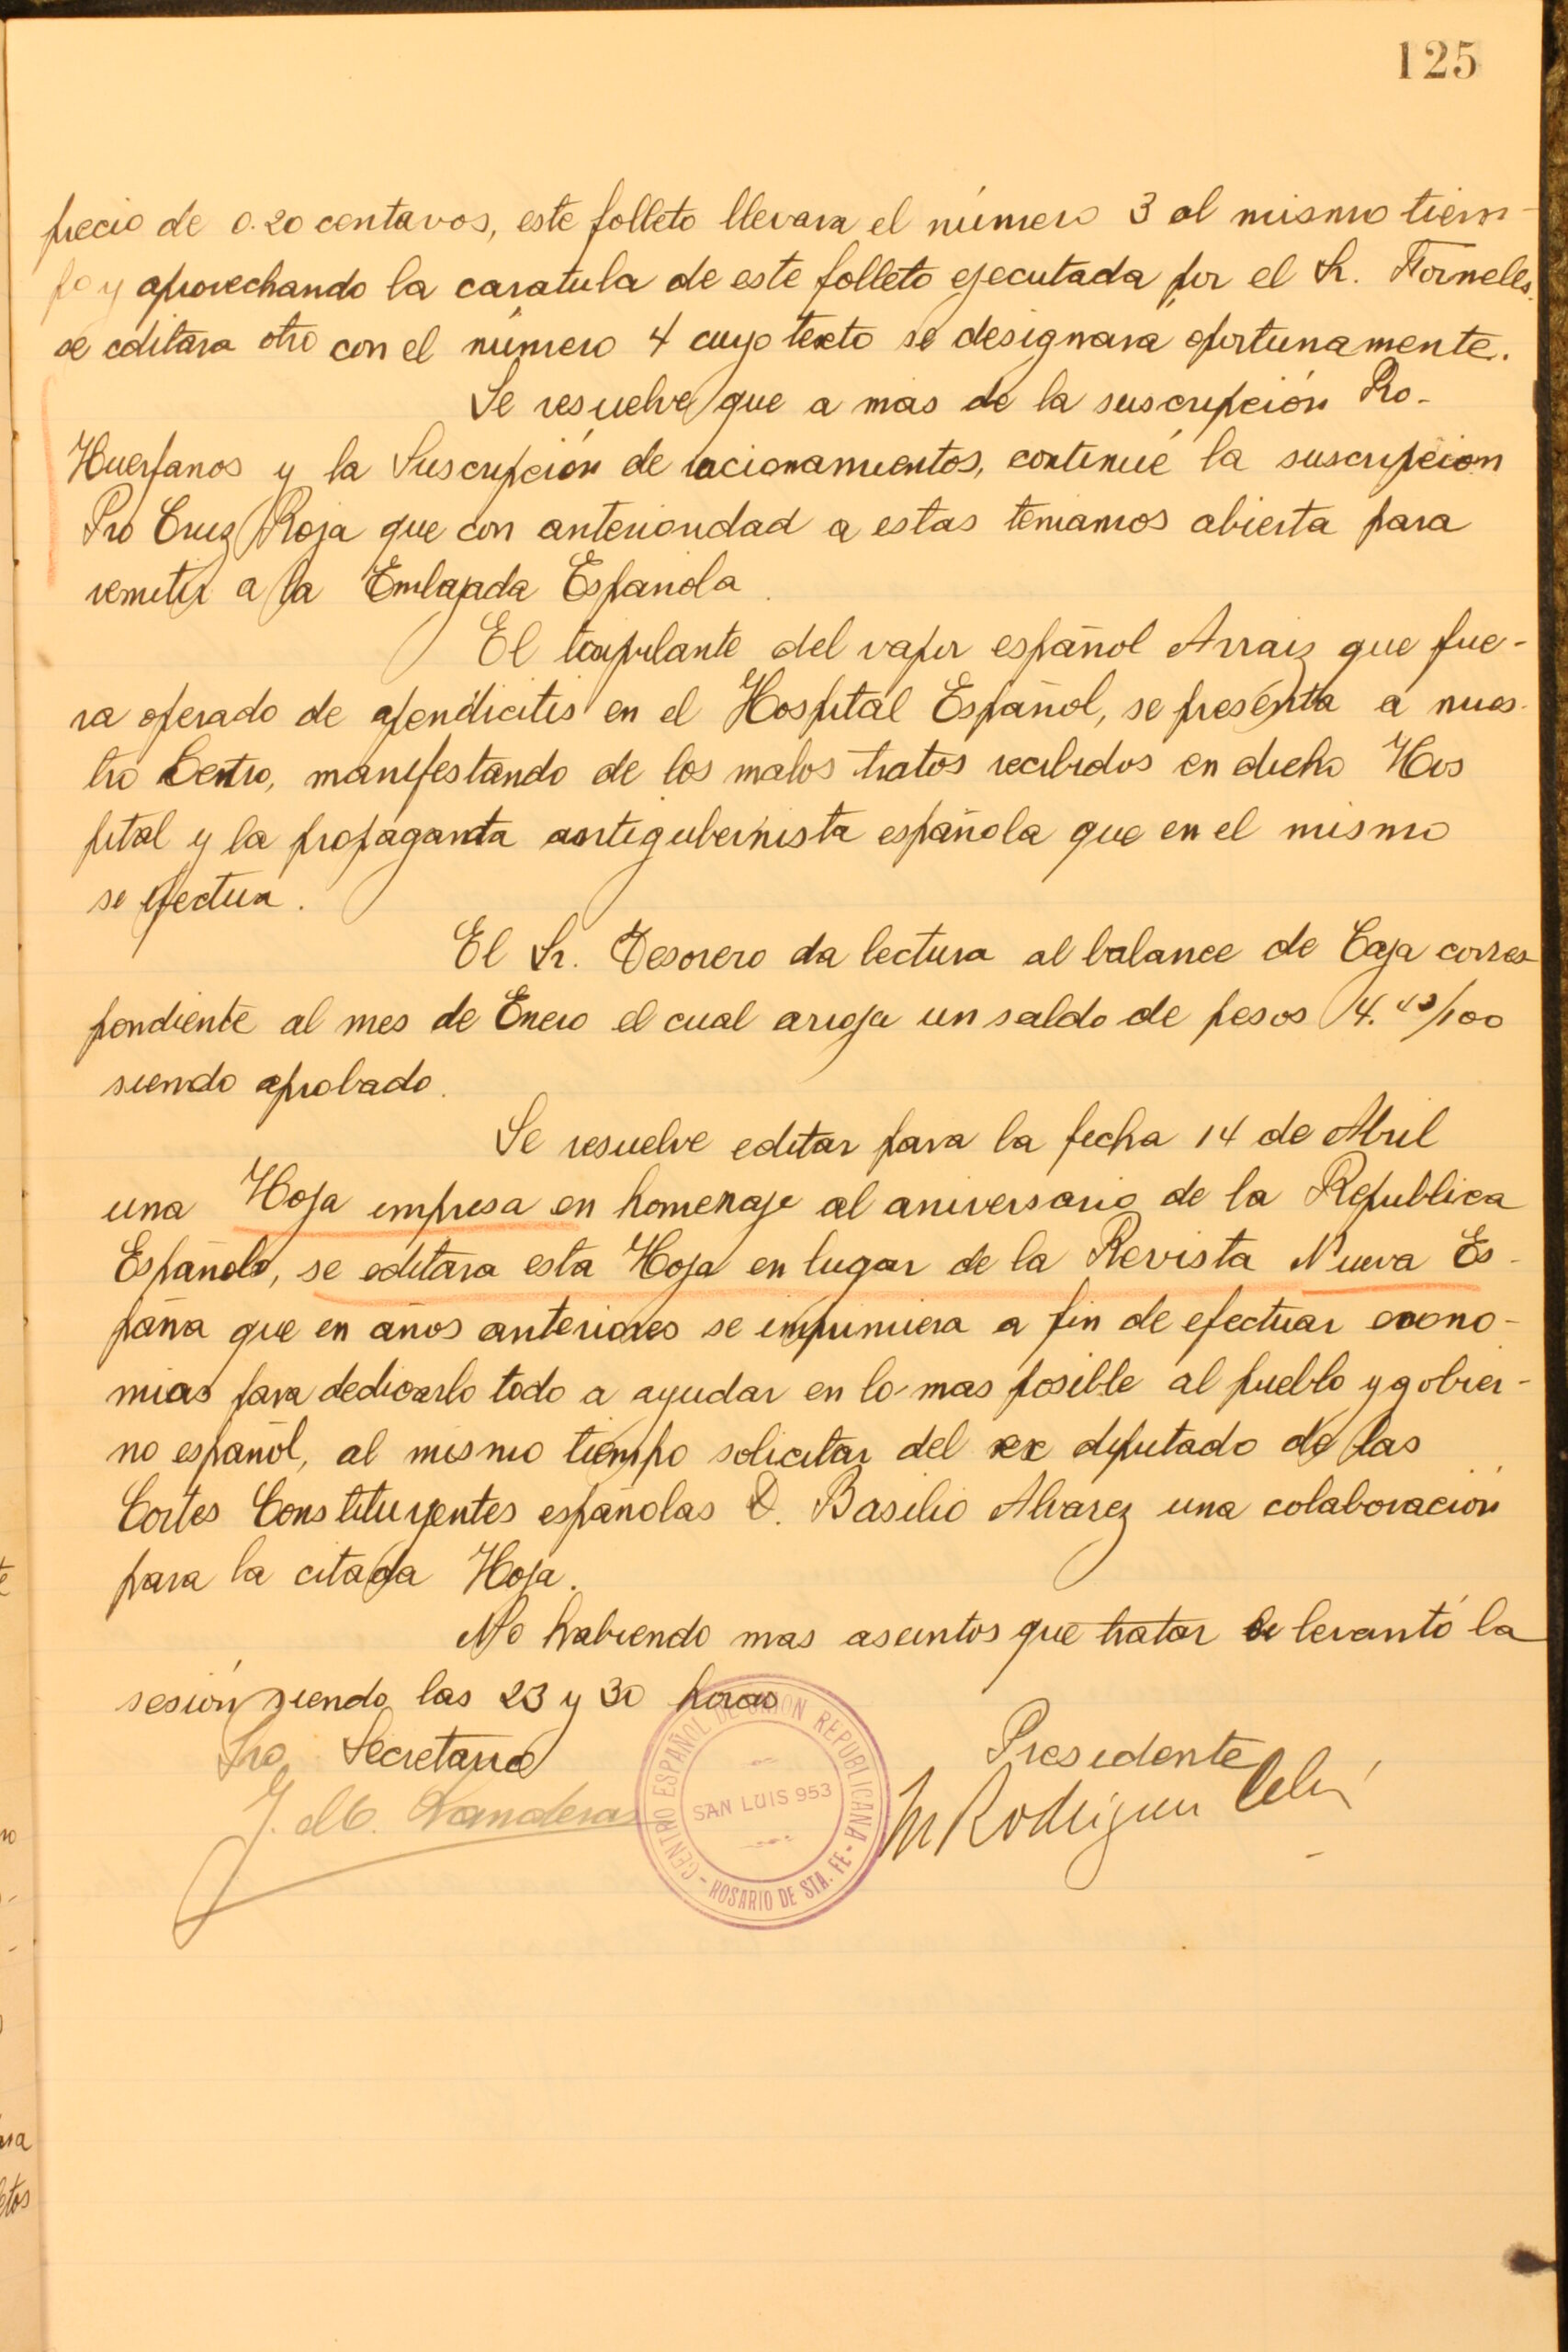 125
precio de 0.20 centavos, este folleto llevara el número 3 al mismo tiem-
po y aprovechando la caratula de este folleto ejecutada por el Sr. Forneles,
se editara otro con el número 4 cuyo texto se designará oportunamente.
Se resuelve que a mas de la suscripción Pro-
Huerfanos y la Suscripción de racionamientos, continué la suscripcion
Pro Cruz Roja que con anterioridad a estas teniamos abierta para
remitir a la Embajada Española.
El tripulante del vapor español Arraiz que fue-
ra operado de apendicitis en el Hospital Español, se presenta a nues-
tro Centro, manifestando de los malos tratos recibidos en dicho Hos
pital y la propaganta antigubernista española que en el mismo
se efectua.
El Sr. Tesorero da lectura al balance de Caja corres
pondiente al mes de Enero el cual arroja un saldo de pesos
siendo aprobado.
Se resuelve editar para la fecha 14 de Abril
una Hoja impresa en homenaje al aniversario de la Republica
Española, se editara esta Hoja en lugar de la Revista Nueva Es-
paña que en años anteriores se imprimiera a fin de efectuar econo-
mias para dedicarlo todo a ayudar en lo mas posible al pueblo y gobier-
no español, al mismo tiempo solicitar del ex diputado de las
Cortes Constituyentes españolas D. Basilio Alvarez una colaboración
para la citada Hoja.
No habiendo mas asuntos que tratar se levantó la
sesión siendo las 23 y 30 horas
Pro Secretario
Presidente
M Rodriguez
CENTRO ESPAÑOL DE UNION REPUBLICANA
SAN LUIS 953
ROSARIO DE STA. FE